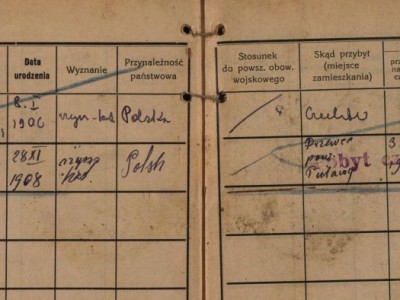 Data
urodzenia
Wyznanie
Przynależność
państwowa
Stosunek
do powsz. obow.
wojskowego
Skąd przybył
(miejsce
zamieszkania)
8. I
1906
rzym-kat
Polska
28 XI
1908
Polsk
pow.
Puławy
byt cz
3